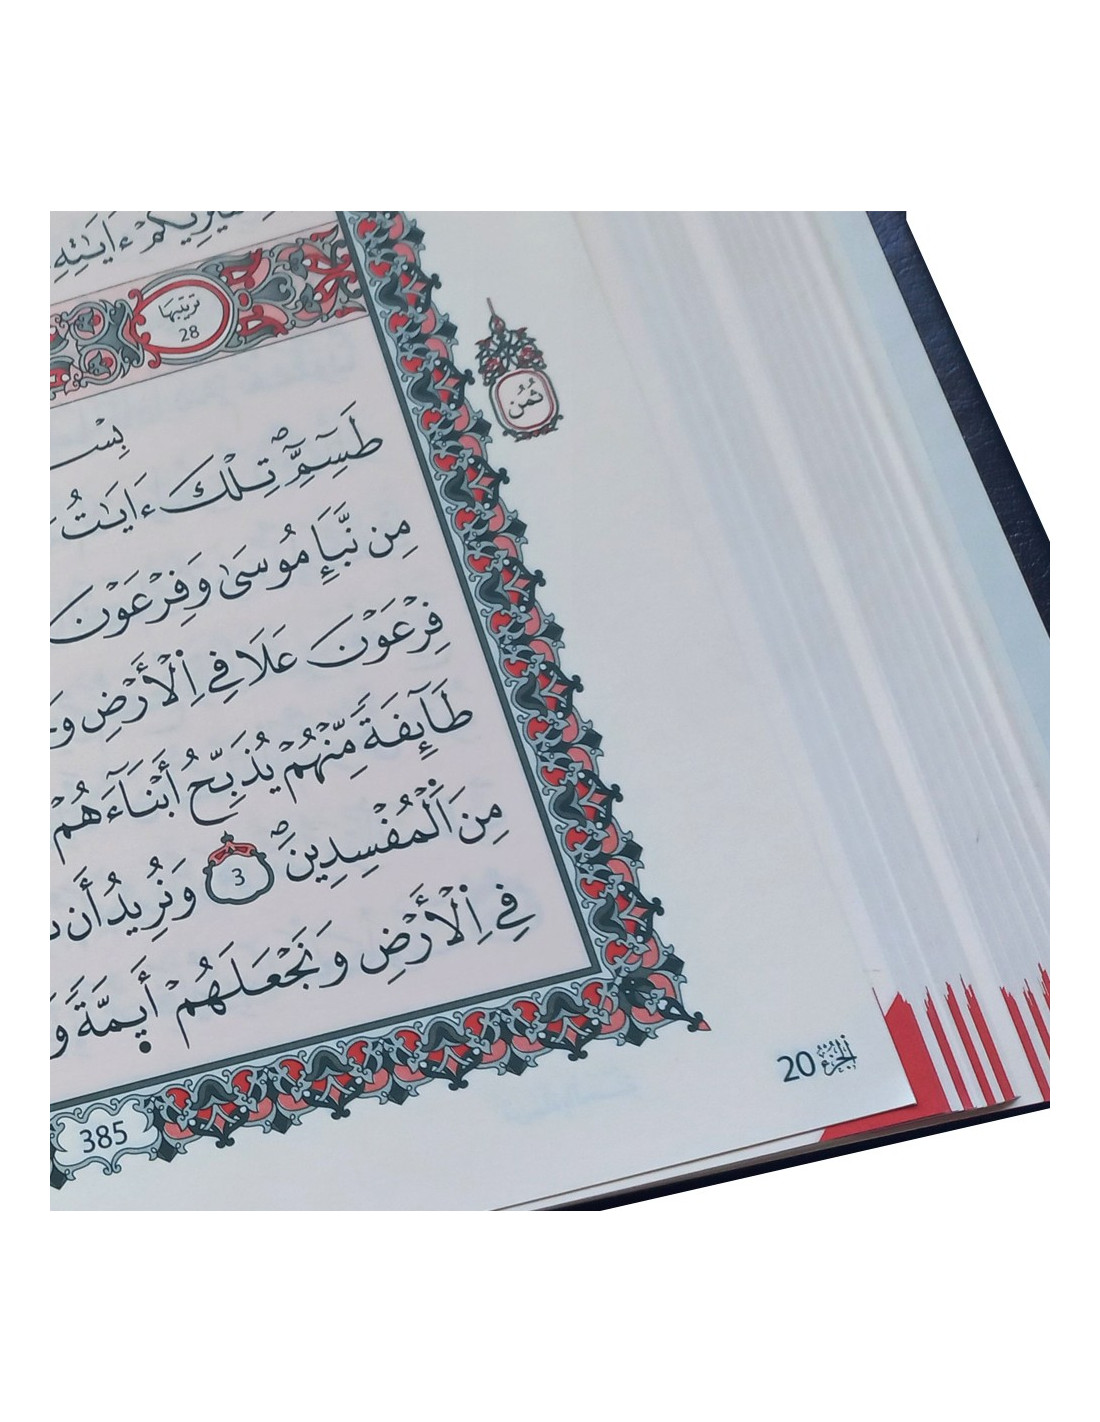 سَيُرِيكُمْ ءَايَٰتِهِۦ
تَرْتِيبُهَا
28
ثُمُن
بِسْـ
طَسِٓمِّٓۖ تِلْكَ ءَايَٰتُ
مِن نَّبَإِ مُوسَىٰ وَفِرْعَوْنَ
فِرْعَوْنَ عَلَا فِي اِلْأَرْضِ وَجَ
طَآئِفَةٗ مِّنْهُمْ يُذَبِّحُ أَبْنَآءَهُمْ
مِنَ اَلْمُفْسِدِينَۖ 3 وَنُرِيدُ أَن
فِي اِلْأَرْضِ وَنَجْعَلَهُمْ أَيِمَّةٗ وَ
385
الجزء 20